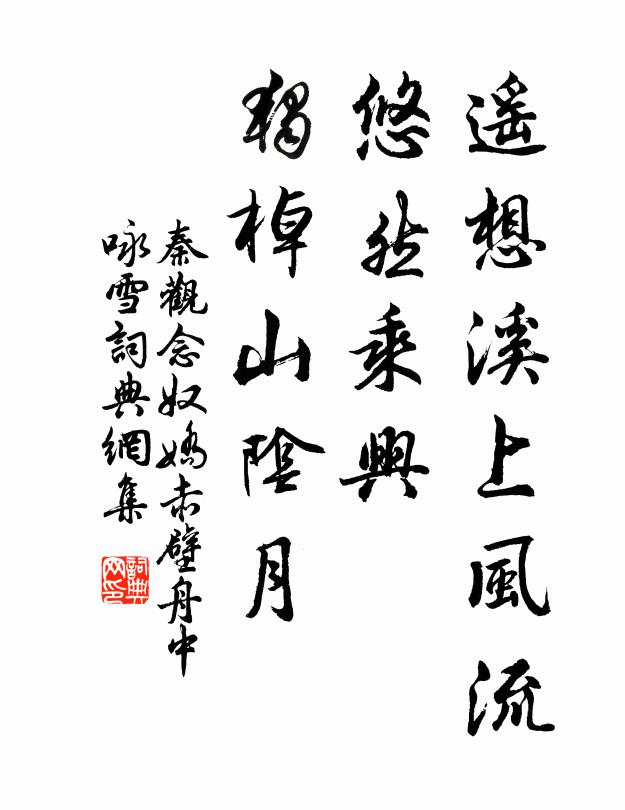 遥想溪上風流
悠然乘興
獨棹山陰月
秦觀念奴嬌赤壁舟中
咏雪詞典網集
詞典
网印